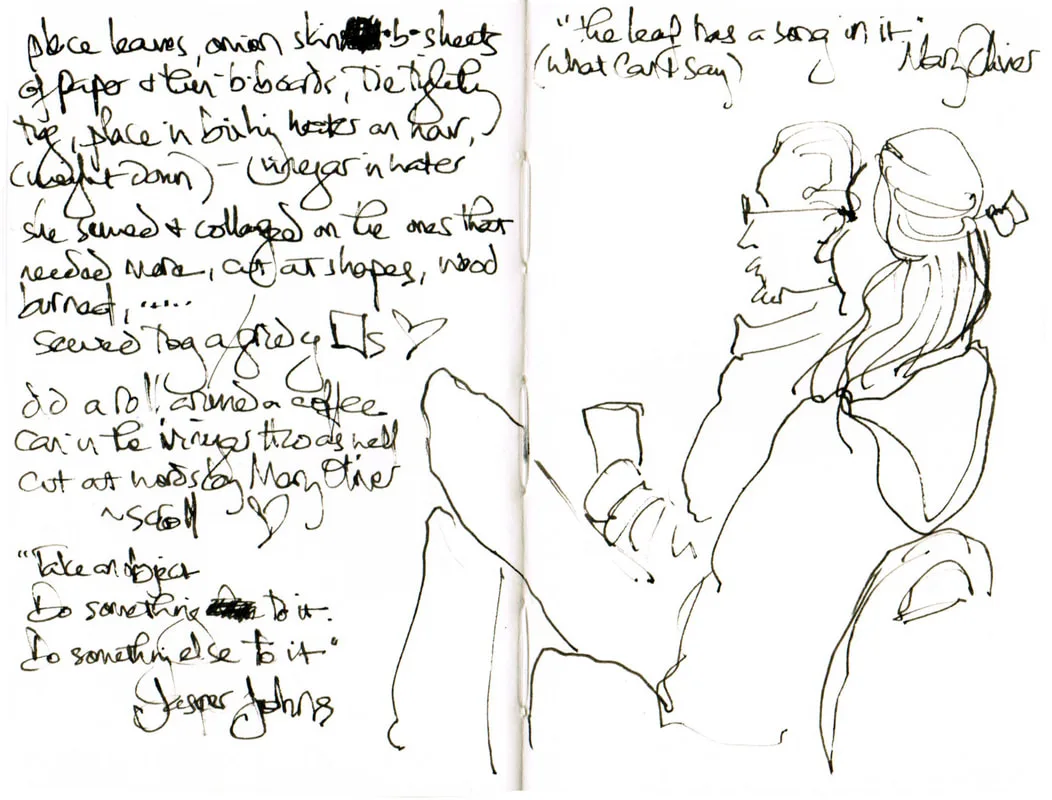 place leaves, onion skin b-sheets
of paper & then b-boards, Tie tightly
place in boiling water an hour,
(weight down) - (vinegar in water
she sewed & collaged on the ones that
needed more, cut out shapes, wood
burned, ......
sewed tog a grid of □s ♡
did a roll around a coffee
can in the vinegar H2O as well
cut out words by Mary Oliver
~ scroll ♡
"Take an object
Do something to it.
Do something else to it"
Jasper Johns
"the leaf has a song in it"
(What Can I Say) Mary Oliver